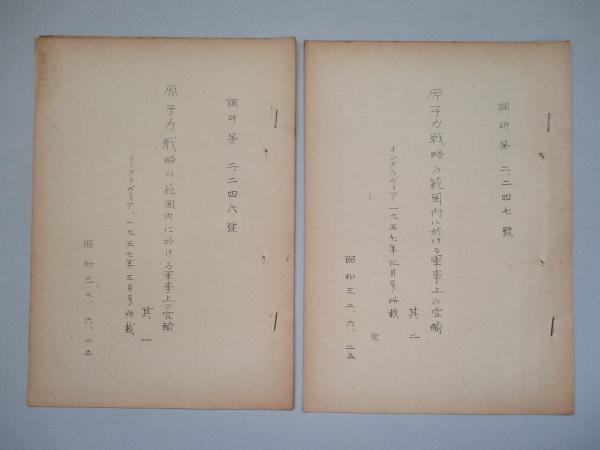 調研第二、二四六號
原子力戦略の範囲内に於ける軍事上の空輸
其一
インタラヴィア、一九五七年三月号所載
昭和三二、六、二五
調研第二、二四七號
原子力戦略の範囲内に於ける軍事上の空輸
其二
インタラヴィア、一九五七年三月号所載
完
昭和三二、六、二五